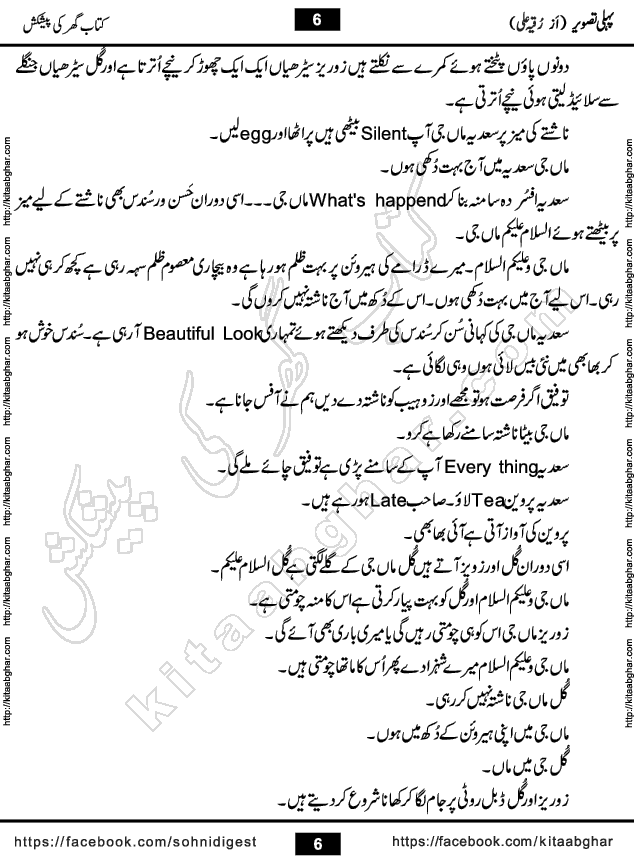 پہلی تصویر (از رُقیہ علی)
6
کتاب گھر کی پیشکش
دونوں پاؤں پٹختے ہوئے کمرے سے نکلتے ہیں زوریز سیڑھیاں ایک ایک چھوڑ کر نیچے اُترتا ہے اور گُل سیڑھیاں جنگلے
سے سلائیڈ لیتی ہوئی نیچے اُترتی ہے۔
ناشتے کی میز پر سعدیہ ماں جی آپ Silent بیٹھی ہیں پراٹھا اور egg لیں۔
ماں جی سعدیہ میں آج بہت دُکھی ہوں۔
سعدیہ افسُر دہ سا منہ بنا کر What's happend ماں جی۔۔۔ اسی دوران حَسن ور سُندس بھی ناشتے کے لیے میز
پر بیٹھتے ہوئے السلام علیکم ماں جی۔
ماں جی وعلیکم السلام۔ میرے ڈرامے کی ہیروئن پر بہت ظلم ہو رہا ہے وہ بیچاری معصوم ظلم سہہ رہی ہے کچھ کر ہی نہیں
رہی۔ اس لیے آج میں بہت دُکھی ہوں۔ اس کے دُکھ میں آج ناشتہ نہیں کروں گی۔
سعدیہ ماں جی کی کہانی سُن کر سُندس کی طرف دیکھتے ہوئے تمہاری Beautiful Look آ رہی ہے۔ سُندس خوش ہو
کر بھابھی میں نئی بیس لائی ہوں وہی لگائی ہے۔
توفیق اگر فرصت ہو تو مجھے اور زوہیب کو ناشتہ دے دیں ہم نے آفس جانا ہے۔
ماں جی بیٹا ناشتہ سامنے رکھا ہے کرو۔
سعدیہ Every thing آپ کے سامنے پڑی ہے توفیق چائے ملے گی۔
سعدیہ پروین Tea لاؤ۔ صاحب Late ہو رہے ہیں۔
پروین کی آواز آتی ہے آئی بھابھی۔
اسی دوران گُل اور زویز آتے ہیں گُل ماں جی کے گلے لگتی ہے گُل السلام علیکم۔
ماں جی وعلیکم السلام اور گُل کو بہت پیار کرتی ہے اس کا منہ چومتی ہے۔
زوریز ماں جی اس کو ہی چومتی رہیں گی یا میری باری بھی آئے گی۔
ماں جی وعلیکم السلام میرے شہزادے پھر اُس کا ماتھا چومتی ہیں۔
گُل ماں جی ناشتہ نہیں کر رہی۔
ماں جی میں اپنی ہیروئن کے دُکھ میں ہوں۔
گُل جی میں ماں۔
زوریز اور گُل ڈبل روٹی پر جام لگا کر کھانا شروع کر دیتے ہیں۔
http://kitaabghar.com http://kitaabghar.com http://kitaabghar.com http://kitaabghar.com http://kitaabghar.com http://kitaabghar.com
http://kitaabghar.com http://kitaabghar.com http://kitaabghar.com http://kitaabghar.com http://kitaabghar.com http://kitaabghar.com
کتاب گھر کی پیشکش
kitaabghar.com
https://facebook.com/sohnidigest
6
https://facebook.com/kitaabghar